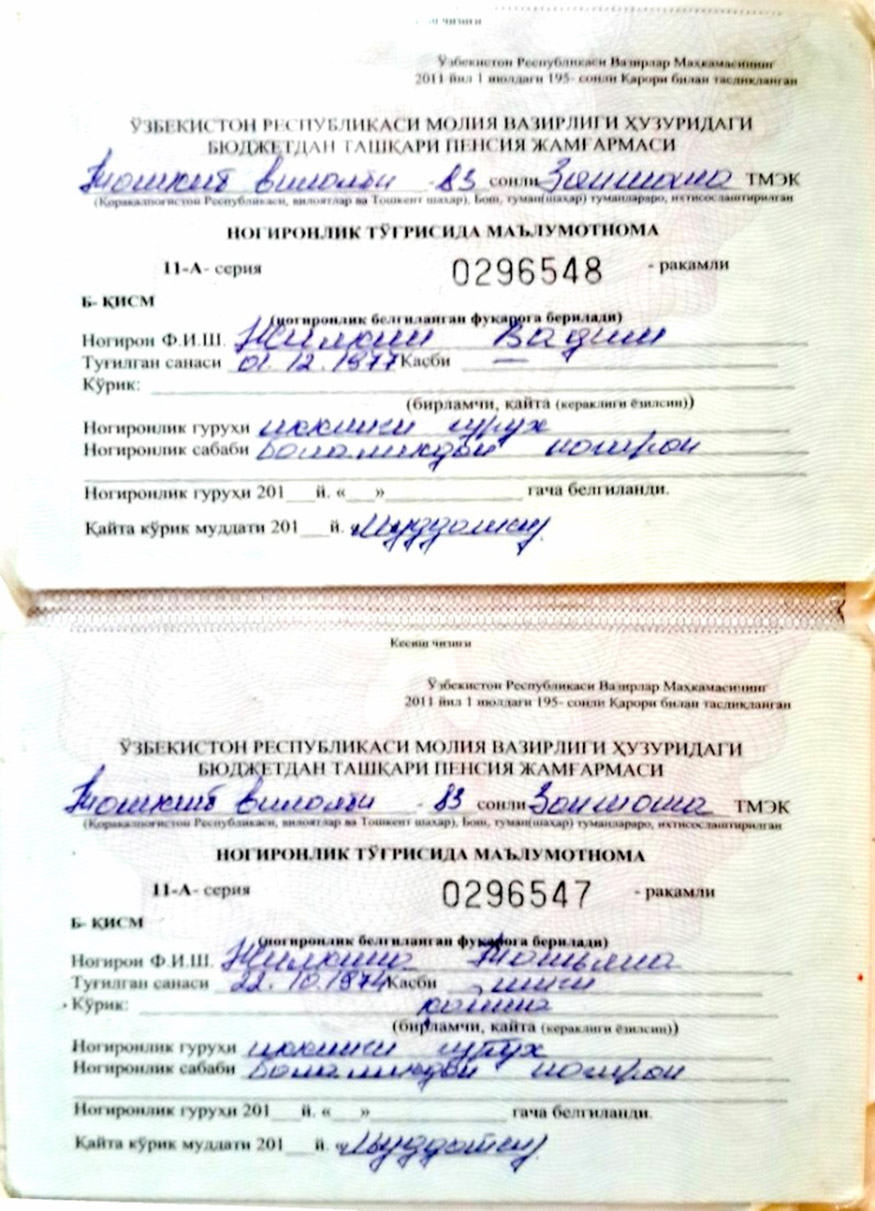 чизиғи
Ўзбекистон Республикаси Вазирлар Маҳкамасининг
2011 йил 1 июлдаги 195- сонли Қарори билан тасдиқланган
ЎЗБЕКИСТОН РЕСПУБЛИКАСИ МОЛИЯ ВАЗИРЛИГИ ҲУЗУРИДАГИ
БЮДЖЕТДАН ТАШҚАРИ ПЕНСИЯ ЖАМҒАРМАСИ
Тошкент вилояти - 83 сонли ТМЭК
(Қорақалпоғистон Республикаси, вилоятлар ва Тошкент шаҳар), Бош, туман(шаҳар) туманлараро, ихтисослаштирилган
НОГИРОНЛИК ТЎҒРИСИДА МАЪЛУМОТНОМА
11-А- серия 0296548 - рақамли
Б- ҚИСМ
(ногиронлик белгиланган фуқарога берилади)
Ногирон Ф.И.Ш. Жилкин Вадим
Туғилган санаси 01.12.1977 Касби —
Кўрик:
(бирламчи, қайта (кераклиги ёзилсин))
Ногиронлик гуруҳи иккинчи гуруҳ
Ногиронлик сабаби Болаликдан ногирон
Ногиронлик гуруҳи 201___й. «___»____________ гача белгиланди.
Қайта кўрик муддати 201___й. «Муддатсиз
Кесиш чизиғи
Ўзбекистон Республикаси Вазирлар Маҳкамасининг
2011 йил 1 июлдаги 195- сонли Қарори билан тасдиқланган
ЎЗБЕКИСТОН РЕСПУБЛИКАСИ МОЛИЯ ВАЗИРЛИГИ ҲУЗУРИДАГИ
БЮДЖЕТДАН ТАШҚАРИ ПЕНСИЯ ЖАМҒАРМАСИ
Тошкент вилояти - 83 сонли ТМЭК
(Қорақалпоғистон Республикаси, вилоятлар ва Тошкент шаҳар), Бош, туман(шаҳар) туманлараро, ихтисослаштирилган
НОГИРОНЛИК ТЎҒРИСИДА МАЪЛУМОТНОМА
11-А- серия 0296547 - рақамли
Б- ҚИСМ
(ногиронлик белгиланган фуқарога берилади)
Ногирон Ф.И.Ш. Жилкина Татьяна
Туғилган санаси 22.10.1974 Касби
Кўрик: қайта
(бирламчи, қайта (кераклиги ёзилсин))
Ногиронлик гуруҳи иккинчи гуруҳ
Ногиронлик сабаби Болаликдан ногирон
Ногиронлик гуруҳи 201___й. «___»____________ гача белгиланди.
Қайта кўрик муддати 201___й. «Муддатсиз